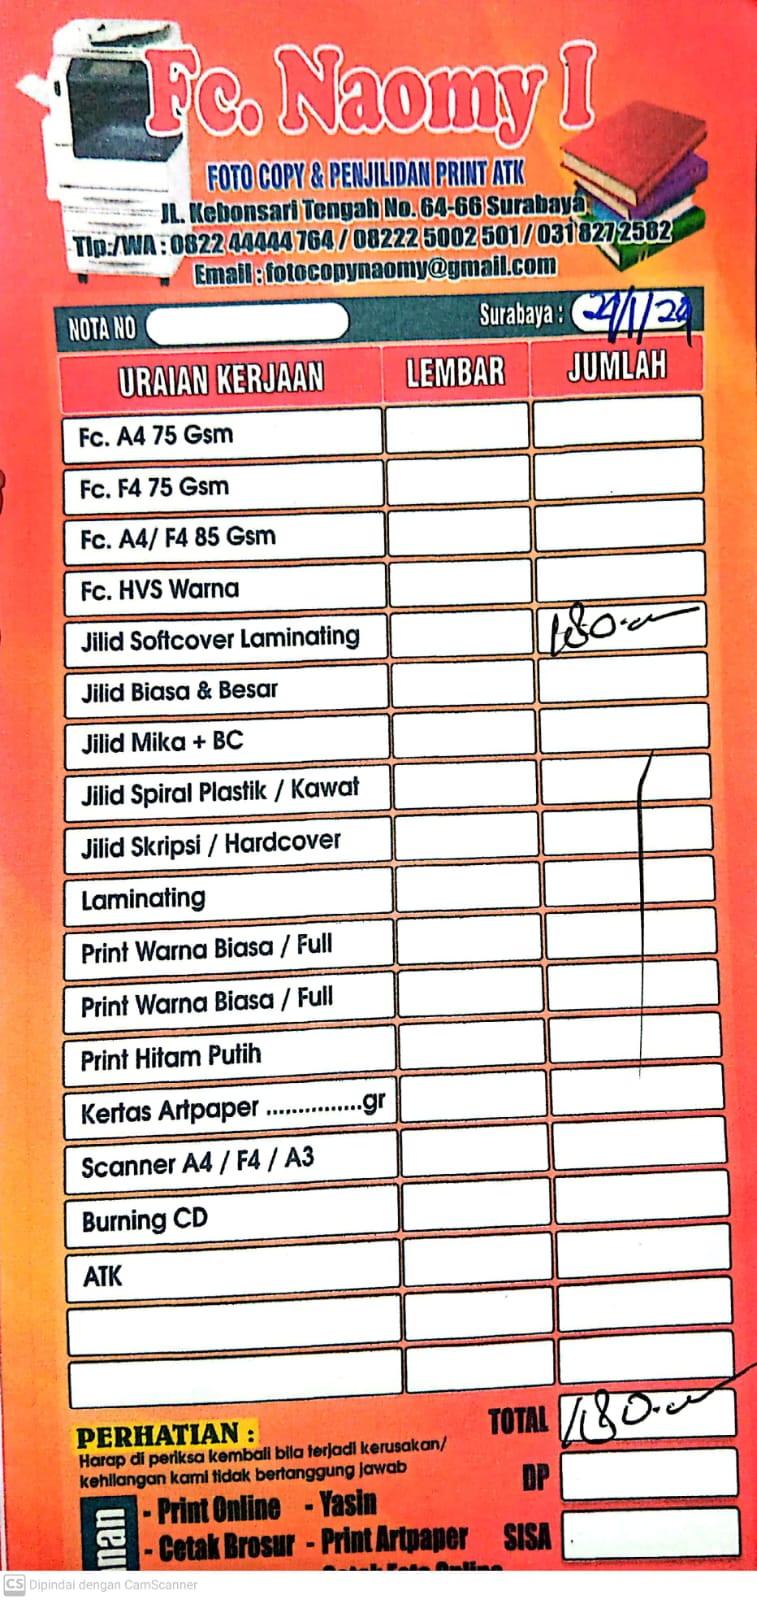 Fc. Naomy I
FOTO COPY & PENJILIDAN PRINT ATK
JL. Kebonsari Tengah No. 64-66 Surabaya
Tlp:/WA : 0822 44444 764 / 08222 5002 501 / 031 827 2582
Email : fotocopynaomy@gmail.com
NOTA NO Surabaya : 24/1/24
URAIAN KERJAAN LEMBAR JUMLAH
Fc. A4 75 Gsm
Fc. F4 75 Gsm
Fc. A4/ F4 85 Gsm
Fc. HVS Warna
Jilid Softcover Laminating 180.
Jilid Biasa & Besar
Jilid Mika + BC
Jilid Spiral Plastik / Kawat
Jilid Skripsi / Hardcover
Laminating
Print Warna Biasa / Full
Print Warna Biasa / Full
Print Hitam Putih
Kertas Artpaper ...............gr
Scanner A4 / F4 / A3
Burning CD
ATK
TOTAL 180.
PERHATIAN :
Harap di periksa kembali bila terjadi kerusakan/
kehilangan kami tidak bertanggung jawab
DP
- Print Online - Yasin
- Cetak Brosur - Print Artpaper
SISA
CS Dipindai dengan CamScanner